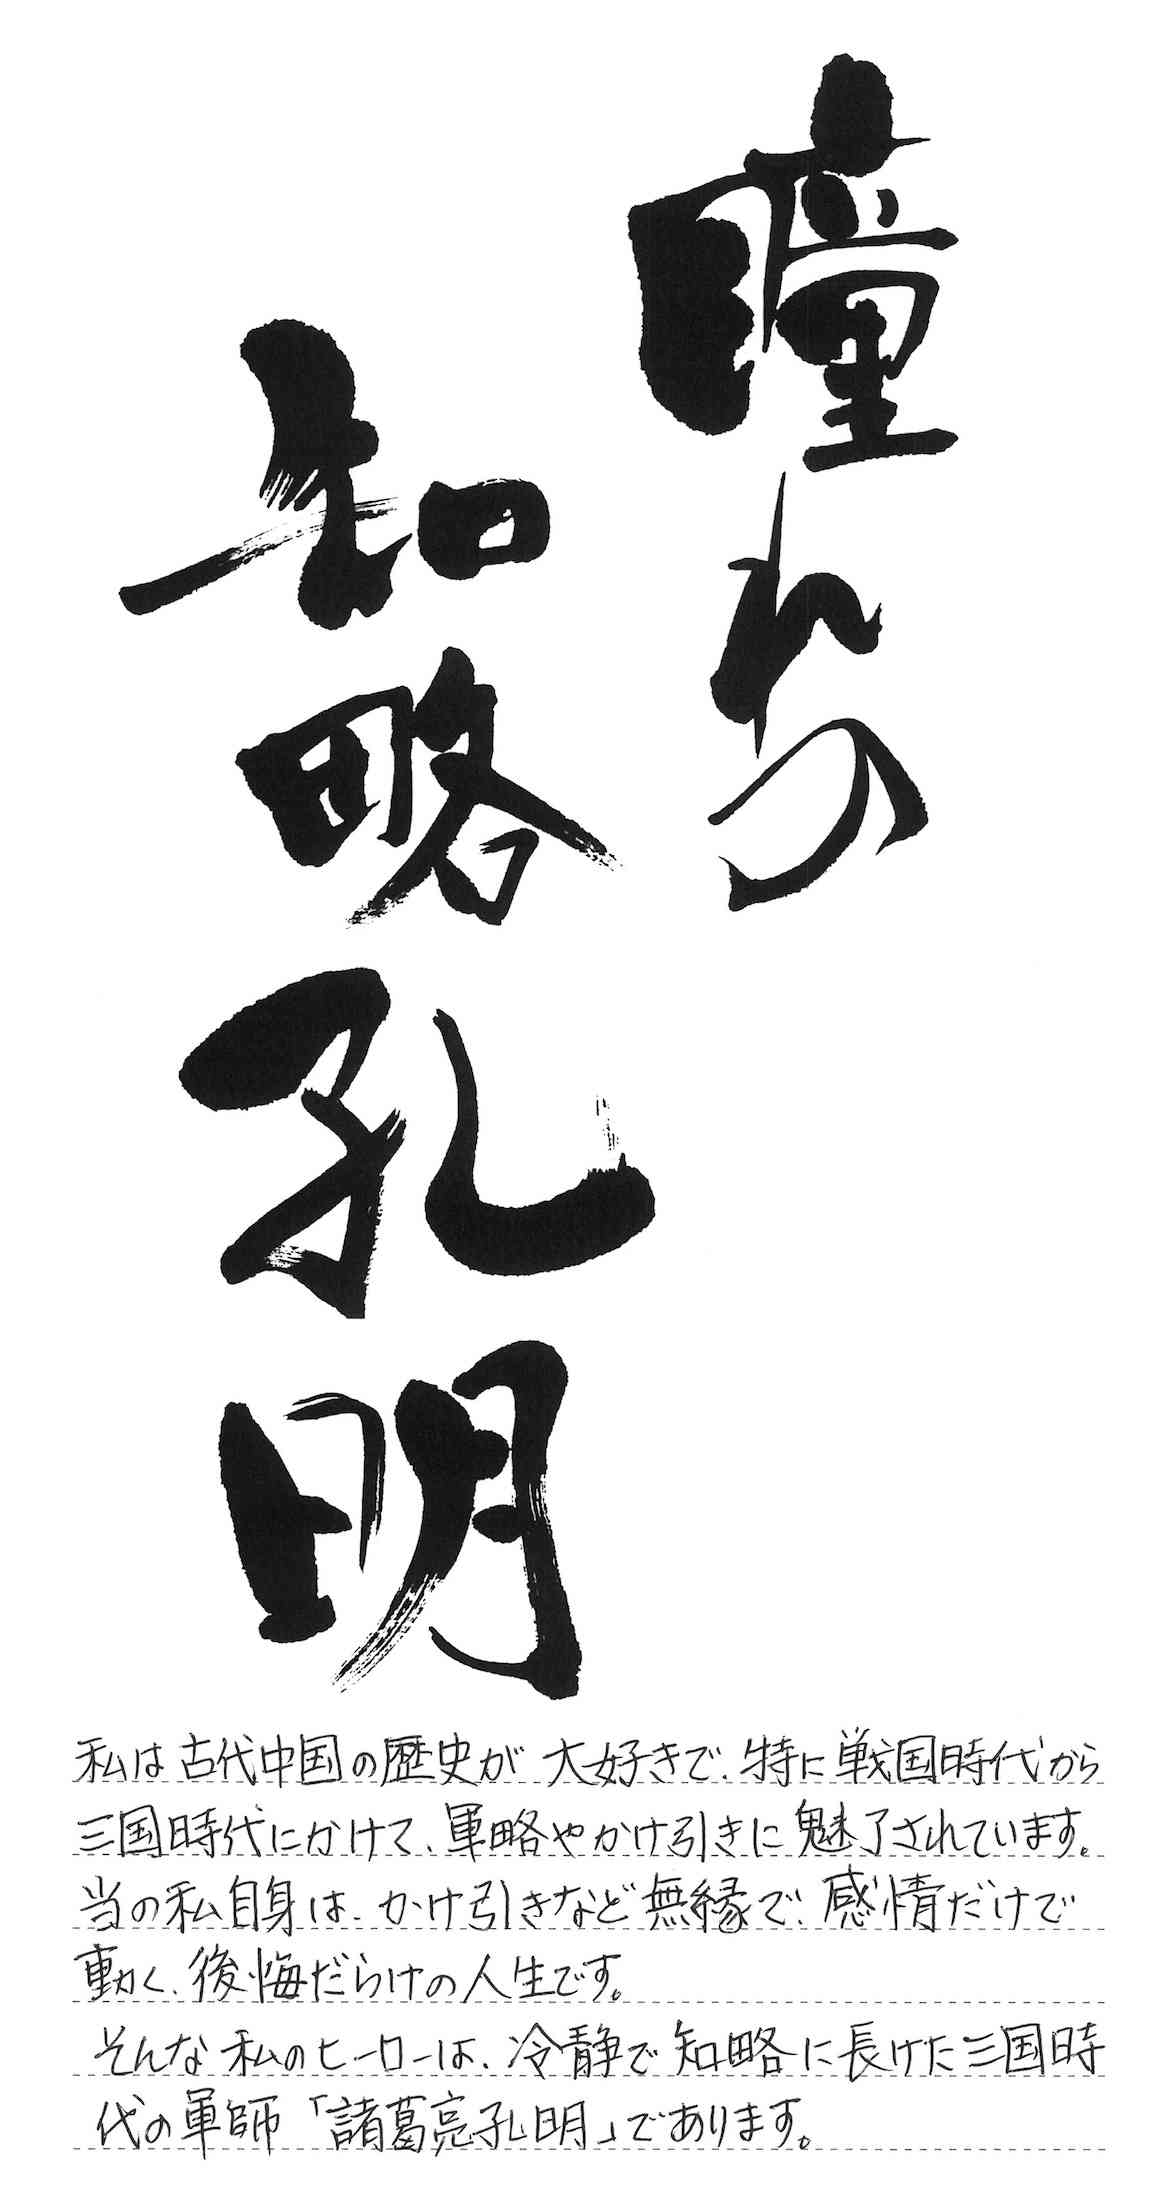 瞳れの
知略孔明
私は古代中国の歴史が大好きで、特に戦国時代から
三国時代にかけて、軍略やかけ引きに魅了されています。
当の私自身は、かけ引きなど無縁で、感情だけで
動く、後悔だらけの人生です。
そんな私のヒーローは、冷静で知略に長けた三国時
代の軍師「諸葛亮孔明」であります。